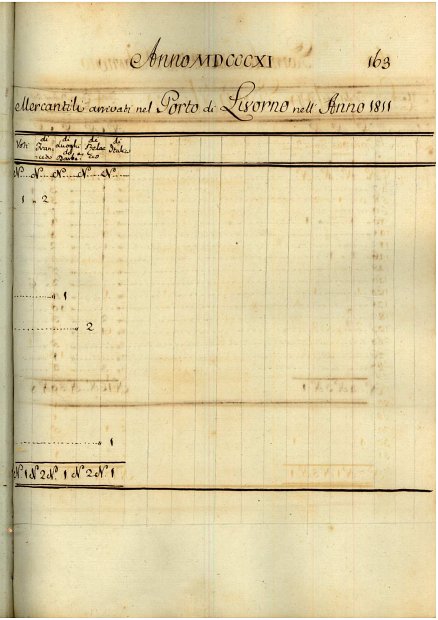 Anno MDCCCXI 163
Mercantili arrivati nel Porto di Livorno nell'Anno 1811
di di di di
Luoghi
N.º N.º N.º N.º N.º
1 2
1
2
1
N.º 1 N.º 2 N.º 1 N.º 2 N.º 1